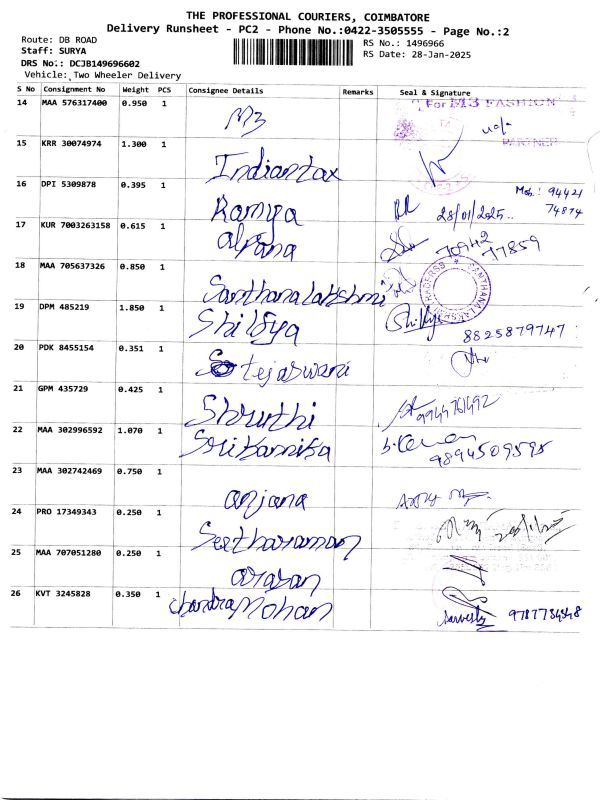 THE PROFESSIONAL COURIERS, COIMBATORE
Delivery Runsheet - PC2 - Phone No.:0422-3505555 - Page No.:2
Route: DB ROAD
Staff: SURYA
DRS No: DCJB149696602
Vehicle: Two Wheeler Delivery
RS No.: 1496966
RS Date: 28-Jan-2025
S No Consignment No Weight PCS Consignee Details Remarks Seal & Signature
14 MAA 576317400 0.950 1 M3 For M3 FASHION
PARTNER
15 KRR 30074974 1.300 1 Indiantax
16 DPI 5309878 0.395 1 Ramya 28/01/2025.. Mob: 94421
74814
17 KUR 7003263158 0.615 1 alpana 70942
77859
18 MAA 705637326 0.850 1 Santhanalakshmi
19 DPM 485219 1.850 1 Shilbya 8825879747
20 PDK 8455154 0.351 1 tejaswani
21 GPM 435729 0.425 1 Shruthi 9944761492
22 MAA 302996592 1.070 1 Srikamika 9894509595
23 MAA 302742469 0.750 1 anjana
24 PRO 17349343 0.250 1 Seetharaman
25 MAA 707051280 0.250 1 arasan
26 KVT 3245828 0.350 1 chandramohan Sarvesh 9787734848